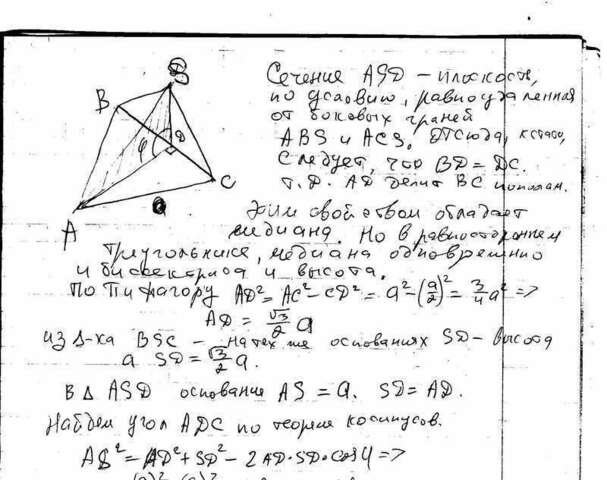 S
B
φ
D
C
A
a
Сечение ASD – плоскость,
по условию, равноудаленная
от боковых граней
ABS и ACS. Отсюда, кстати,
следует, что BD = DC.
т.D. AD делит BC пополам.
Этим свойством обладает
медиана. Но в равностороннем
треугольнике, медиана одновременно
и биссектриса и высота.
По Пифагору AD² = AC² – CD² = a² – (a/2)² = 3/4 a² =>
AD = √3/2 a
из Δ-ка BSC – на тех же основаниях SD – высота
а SD = √3/2 a.
В Δ ASD основание AS = a. SD = AD.
Найдем угол ADC по теореме косинусов.
AS² = AD² + SD² – 2AD·SD·cos φ =>